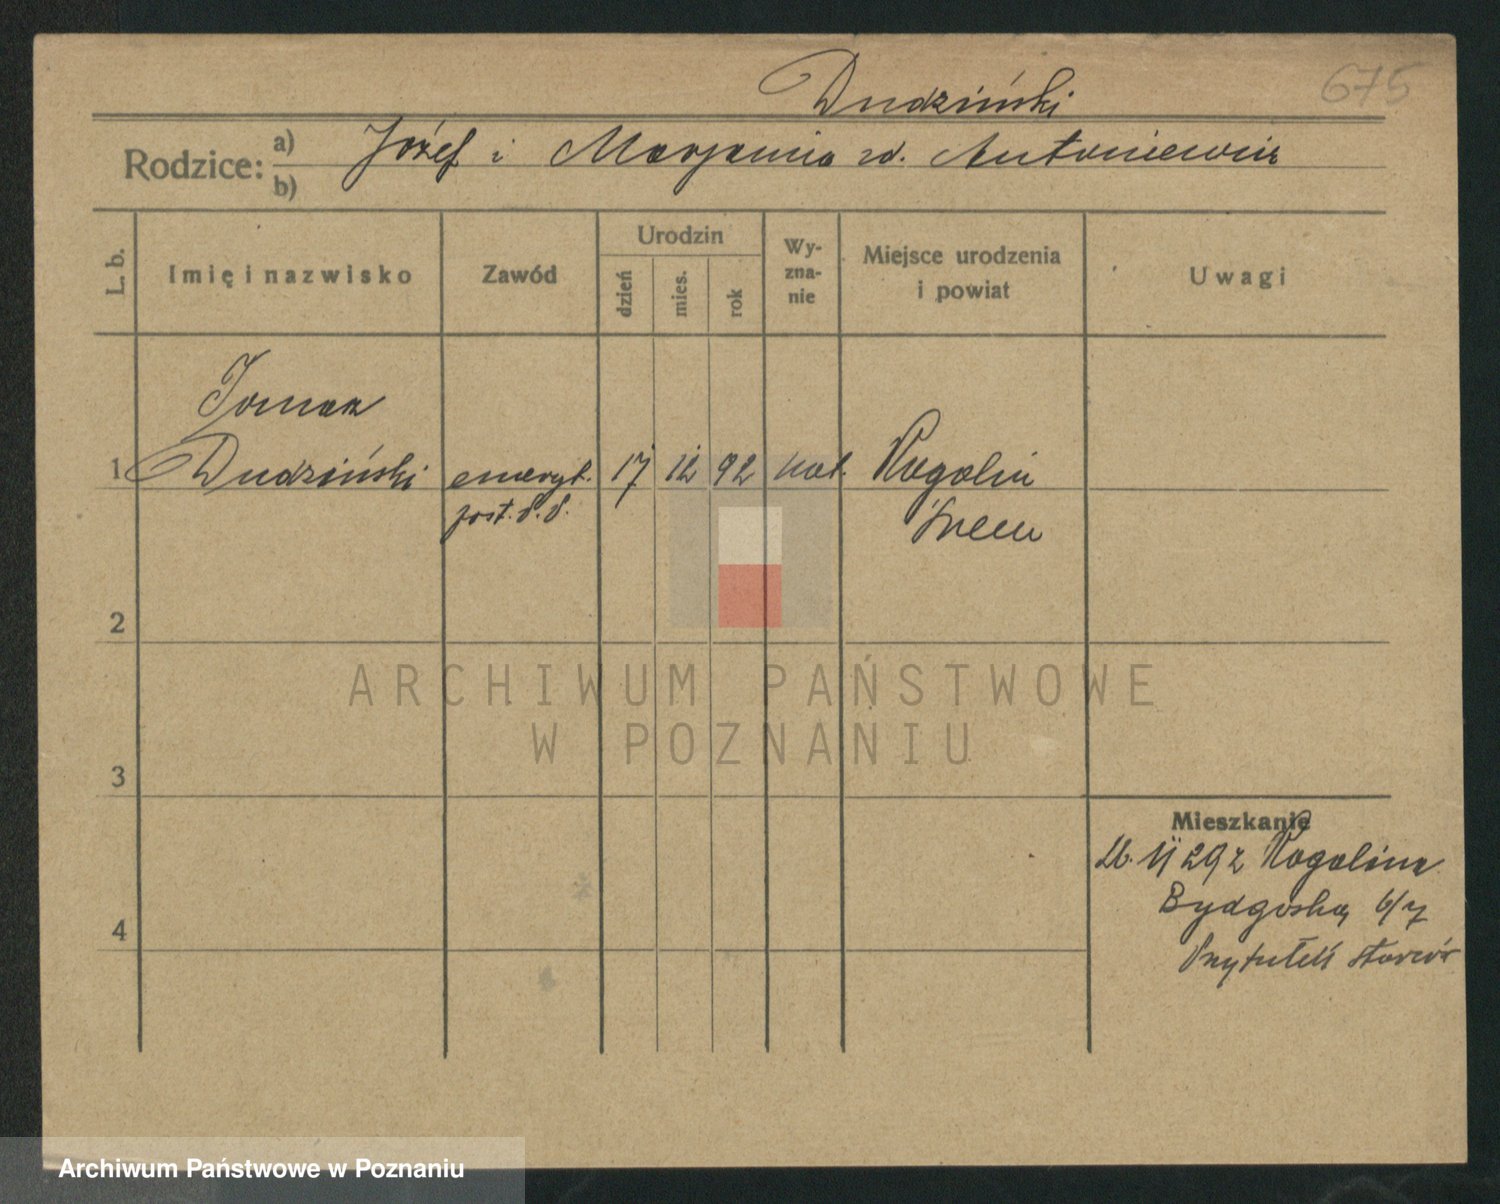 Dudziński
675
Rodzice:
a) Józef i Marjanna zd. Antoniewicz
b)
L. b.
Imię i nazwisko
Zawód
Urodzin
dzień
mies.
rok
Wy-
zna-
nie
Miejsce urodzenia
i powiat
Uwagi
Tomasz
1 Dudziński emeryt. 17 12 92 kat. Rogalin
post. P. P. Śrem
2
3
4
ARCHIWUM PAŃSTWOWE
W POZNANIU
Mieszkanie
11 29 z Rogalina
Bydgoska 6/7
Przytułek starców
Archiwum Państwowe w Poznaniu